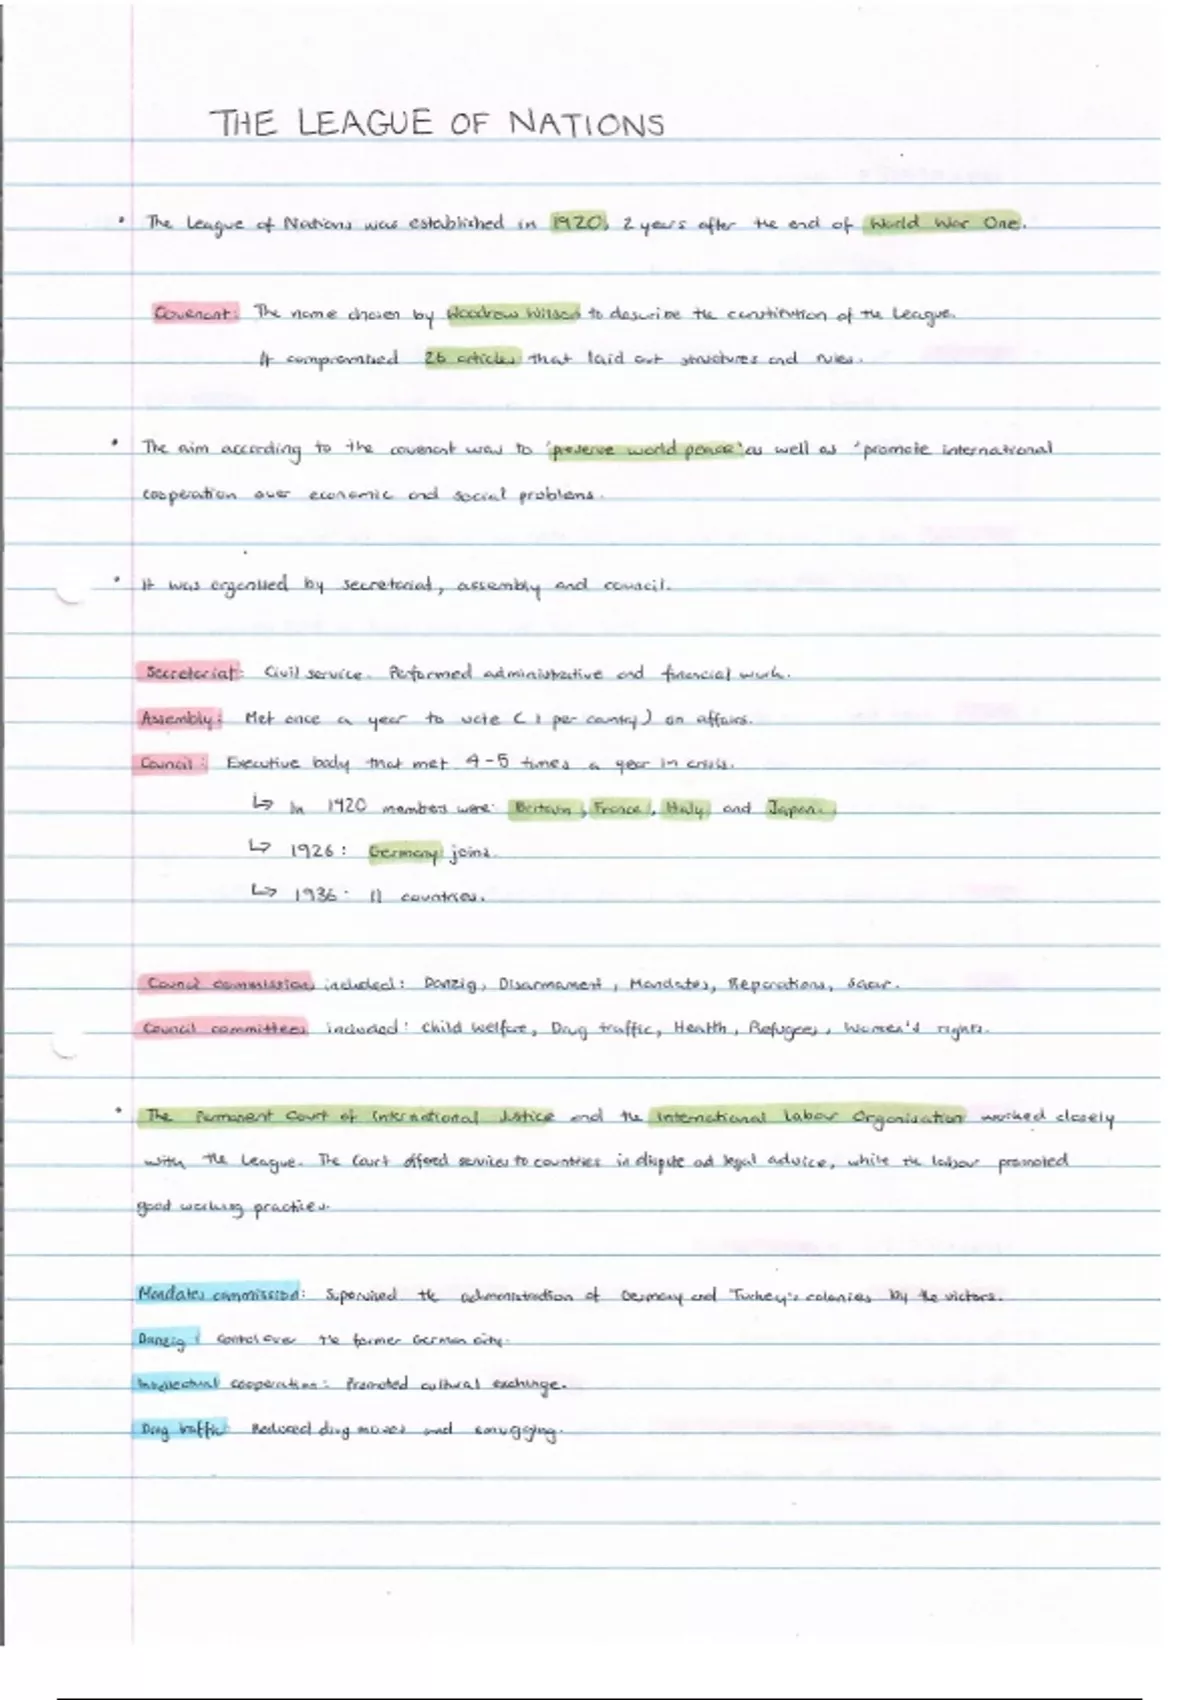 THE LEAGUE OF NATIONS
• The League of Nations was established in 1920, 2 years after the end of World War One.
Covenant: The name chosen by Woodrow Wilson to describe the constitution of the League.
It compromised 26 articles that laid out structures and rules.
• The aim according to the covenant was to 'preserve world peace' as well as 'promote international
cooperation over economic and social problems.
• It was organised by secretariat, assembly and council.
Secretariat: Civil service. Performed administrative and financial work.
Assembly: Met once a year to vote (1 per country) on affairs.
Council: Executive body that met 4-5 times a year in crisis.
↳ In 1920 members were: Britain, France, Italy and Japan.
↳ 1926: Germany joins.
↳ 1936: 11 countries.
Council commissions included: Danzig, Disarmament, Mandates, Reparations, Saar.
Council committees included: Child Welfare, Drug traffic, Health, Refugees, Women's rights.
• The Permanent Court of International Justice and the International Labour Organisation worked closely
with the League. The Court offered services to countries in dispute and legal advice, while the labour promoted
good working practices.
Mandates commission: Supervised the administration of Germany and Turkey's colonies by the victors.
Danzig: Control over the former German city.
Intellectual cooperation: Promoted cultural exchange.
Drug traffic: Reduced drug and smuggling.